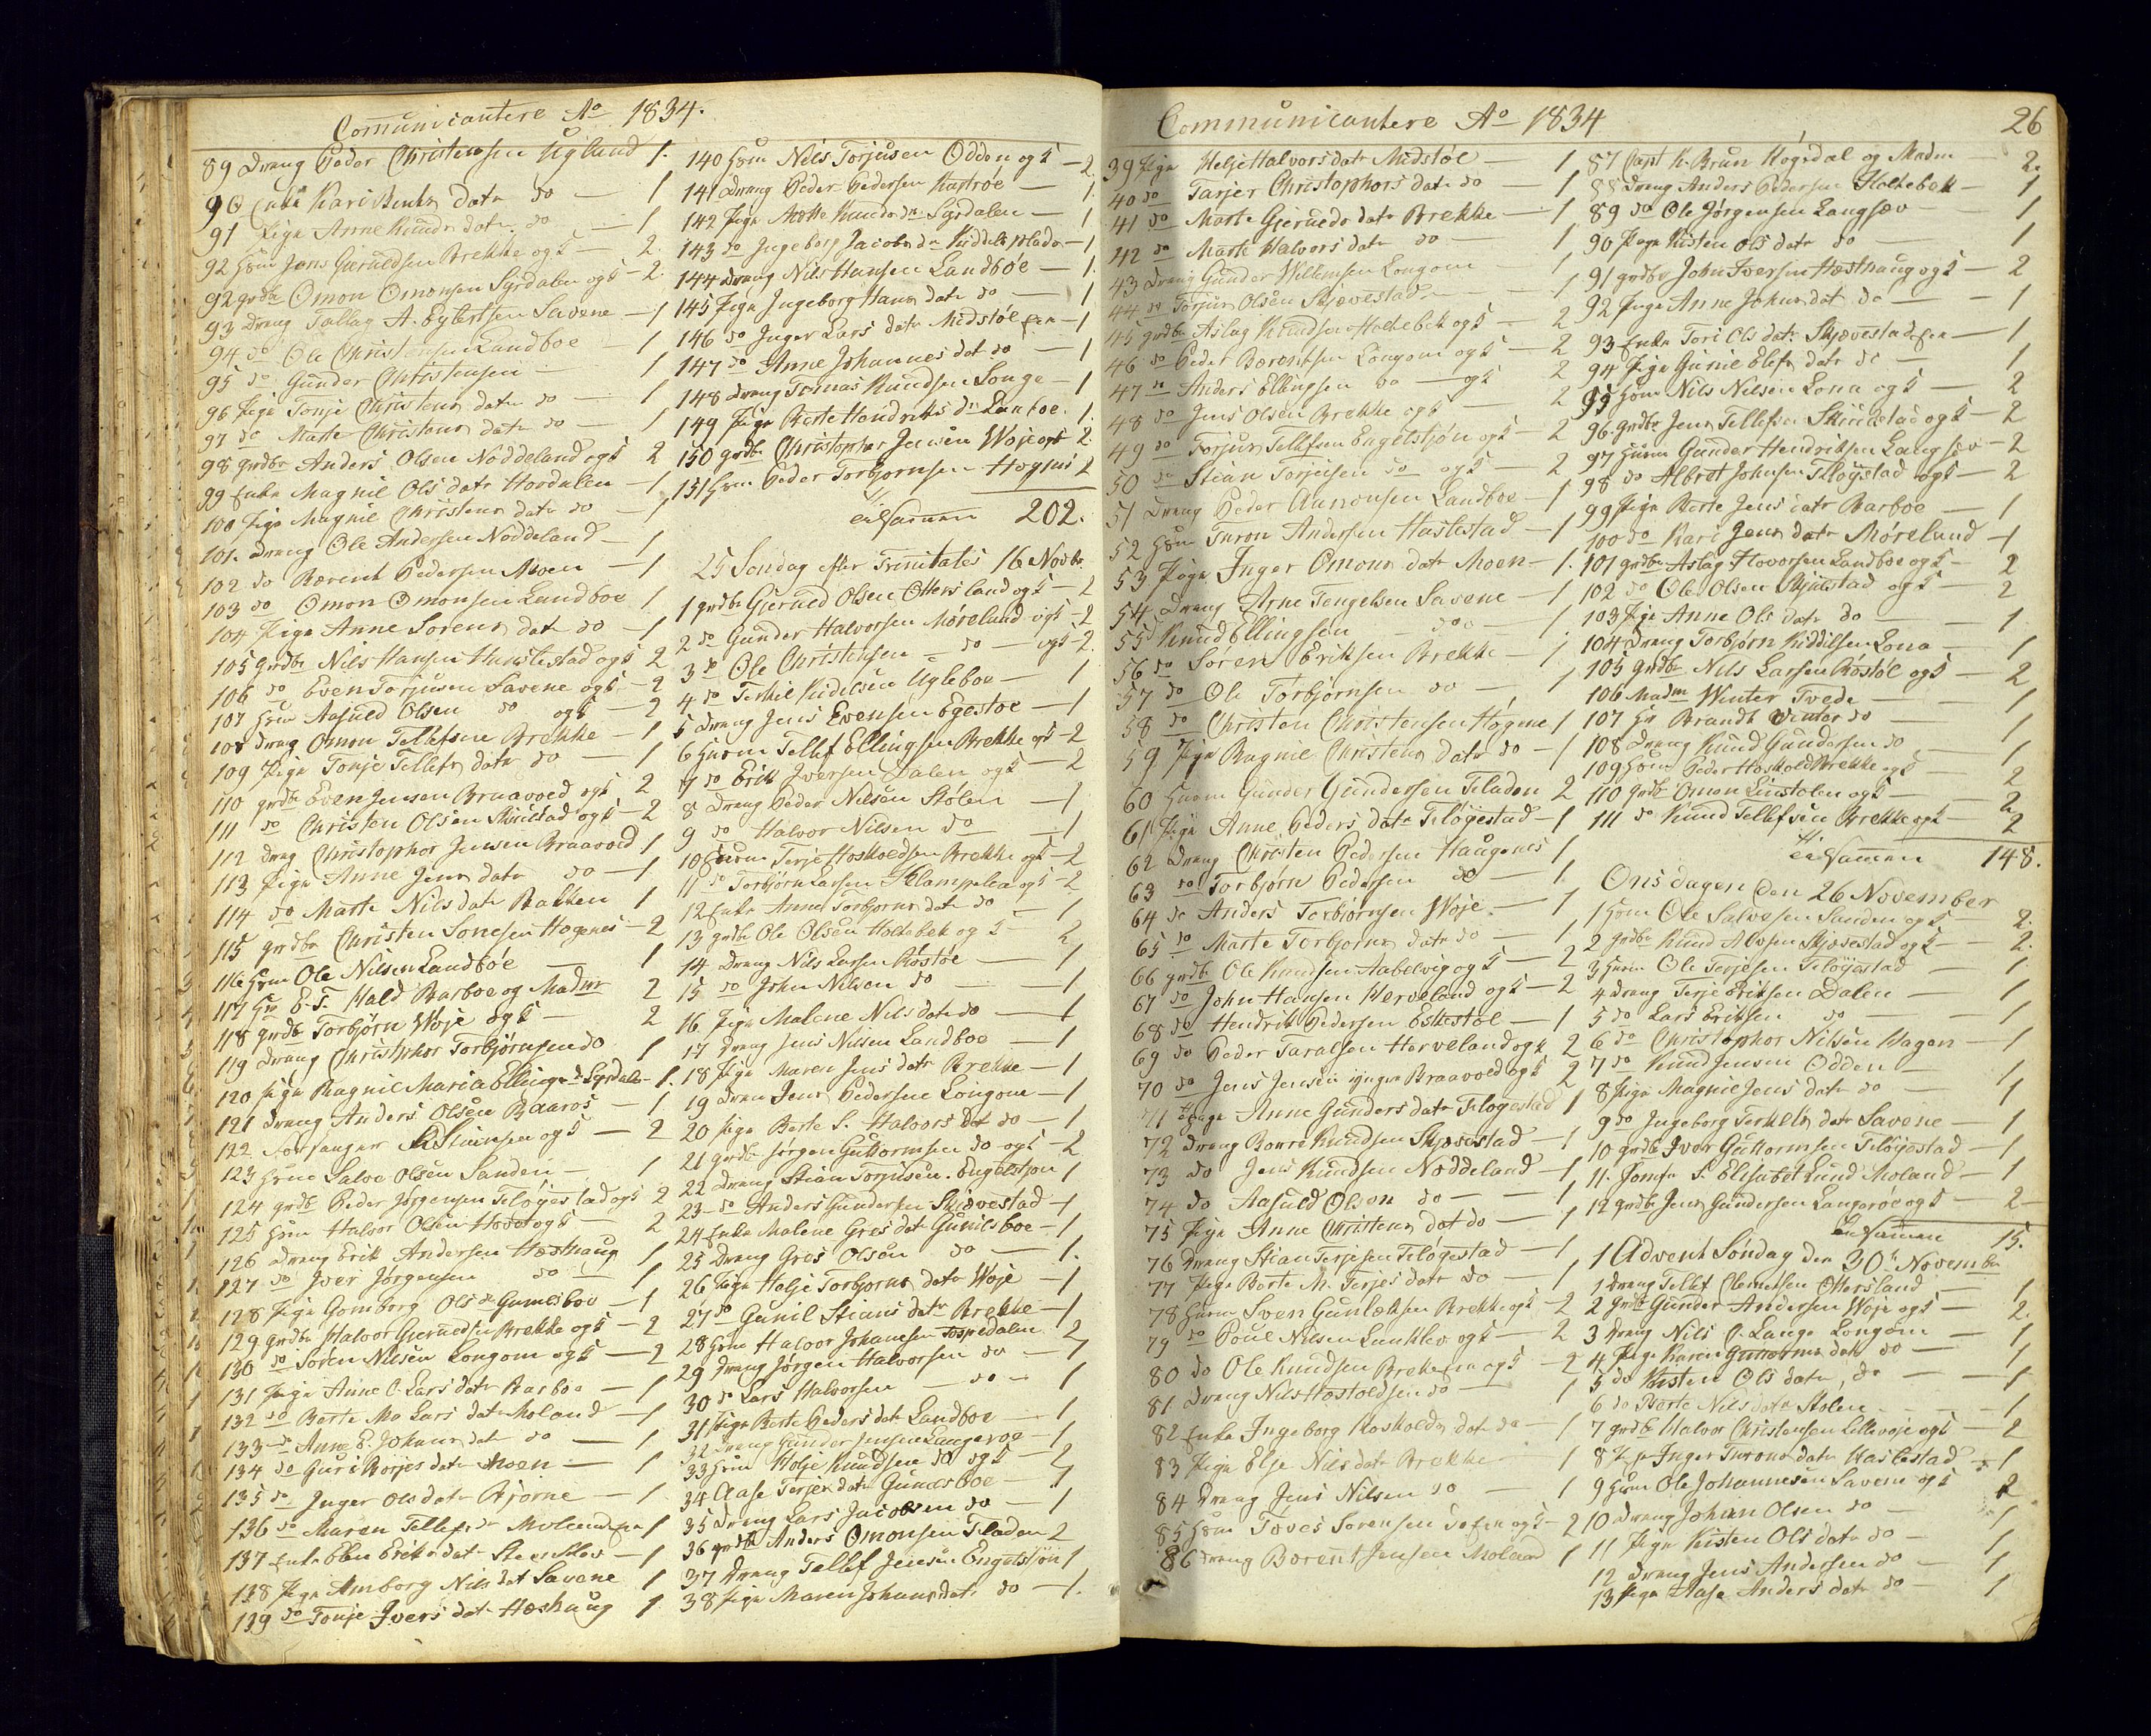 Communicantere Ao 1834.
89 Drang Peder Christensen Ugland 1.
90 Enke Kari Bents datr do 1
91 Pige Anne Knuds datr do 1
92 Hsm Jens Gjeruldsen Brekke og K 2
92 grdbr Omon Omonsen Syrdalen og K 2
93 Drang Tallag A. Egbertsen Savene 1
94 do Ole Christensen Landboe 1
95 do Gunder Christensen 1
96 Pige Tonje Christens datr do 1
97 do Marte Christens datr do 1
98 grdbr Anders Olsen Noddeland og K 2
99 Enke Magnil Ols datr Hordalen 1
100 Pige Magnil Christens datr do 1
101. Drang Ole Andersen Noddeland 1
102 do Bærent Pedersen Moen 1
103 do Omon Omonsen Landboe 1
104 Pige Anne Sorens datr do 1
105 grdbr Nils Hansen og K 2
106 do Even Torjusen Savene og K 2
107 Hsm Aasuld Olsen do og K 2
108 Drang Omon Tellefsen Brekke 1
109 Pige Tonje Tellefs datr do 1
110 grdbr Even Jensen Braavold og K 2
111 do Christen Olsen Skiulstad og K 2
112 Drang Christopher Jensen Braavold 1
113 Pige Anne Jens datr do 1
114 do Marte Nils datr Bakken 1
115 grdbr Christen Sonesen Hogenes 2
116 Hsm Ole Nilsen Landboe 1
117 Hr E. T. Hald Barboe og Madm 2
118 grdb Torbjørn Woje og K 2
119 Drang Christopher Torbjørnsen do 1
120 Pige Ragnil Maria Ellings dr Syrdalen 1.
121 Drang Anders Olsen Baaros 1
122 Forsanger Stiansen og K 2
123 Hsm Salve Olsen Sanden 1
124 grdb Peder Jørgensen Fløgestad og K 2
125 Hsm Halvor Olsen Hove og K 2
126 Drang Erik Andersen Hesthaug 1
127 do Iver Jørgensen do 1
128 Pige Gomborg Ols dr Gunilsboe 1
129 grdbr Halvor Gjeruldsen Brekke og K 2
130 do Soren Nilsen Longom og K 2
131 Pige Anne C. Lars datr Barboe 1
132 do Berte Ma Lars datr Moland 1
133 do Anne E. Johans dat do 1
134 do Guri Borjes datr Moen 1
135 do Inger Ols datr Bjorne 1
136 do Maren Tellefs dr Moland 1
137 Enke Elen Eriks datr 1
138 Pige Amborg Nils dat Savene 1
139 do Tonje Ivers dat Hesthaug 1
140 Hsm Nils Torjusen Odden og K 2
141 Drang Peder Pedersen Kastrøe 1.
142 Pige Mette Knuds dr Syrdalen 1
143 do Ingeborg Jacobs dr 1
144 Drang Nils Hansen Landbøe 1.
145 Pige Ingeborg Hans datr do 1
146 do Inger Lars datr Midstøl 1
147 do Anne Johannes dat do 1
148 Drang Tomas Knudsen Songe 1
149 Pige Berte Hendriks dr Lanboe 1.
150 grdbr Christopher Jensen Woje og K 2.
151 Hsm Peder Torbjornsen Hognes 2
tilsamen 202.
25 Sondag efter Trinitatis 16 Novbr
1 grdbr Gjeruld Olsen Ottersland og K 2
2 do Gunder Halvorsen Mørelund og K 2
3 do Ole Christensen do og K 2.
4 do Terkil Kidelsen Ugleboe 1
5 Drang Jens Evensen Egestoe 1
6 Husm Tellef Ellingsen Brekke og K 2
7 do Erik Iversen Dalen og K 2
8 Drang Peder Nilsen Stolen 1
9 do Halvor Nilsen do 1
10 Husm Terje Hoskoldsen Brekke og K 2
11 do Torbjørn Larsen og K 2
12 Enke Anne Torbjorns datr do 1
13 grdbr Ole Olsen Holtebek og K 2
14 Drang Nils Larsen Røstøl 1
15 do John Nilsen do 1
16 Pige Malene Nils datr do 1
17 Drang Jens Nilsen Landboe 1
18 Pige Maren Jens datr Brekke 1
19 Dreng Jens Pedersen Longom 1
20 Pige Berte S. Halvors dat do 1
21 grdb Jørgen Guttormsen do og K 2
22 Drang Stian Torjusen Engelstjøn 1
23 do Anders Gundersen Skjævestad 1
24 Enke Malene Gres dat Gunilsboe 1
25 Drang Gres Olsen do 1.
26 Pige Helje Torbjorns datr Woje 1
27 do Gunil Stians datr Brekke 1
28 Hsm Halvor Johansen Tosgedalen 2
29 Drang Jørgen Halvorsen do 1
30 do Lars Halvorsen do 1
31 Pige Berte Peders datr Landboe 1
32 Drang Gunder Jensen Langeroe 1
33 Hsm Holje Knudsen do og K 2
34 Aase Terjes datr Gunelsboe 1
35 Drang Lars Jacobsen do 1
36 grdbr Anders Omonsen Fladen 2
37 Drang Tellef Jensen Engelstjøn 1
38 Pige Maren Johans dat do 1.
Communicantere Ao 1834
26
39 Pige Helje Halvors datr Midstøl 1
40 do Tarjer Christophers datr do 1
41 do Marte Gjerulds datr Brekke 1
42 do Marte Halvors datr do 1
43 Drang Gunder Willemsen Longom 1
44 do Torjus Olsen Skjævestad 1
45 grdbr Aslag Knudsen Holtebek og K 2
46 do Peder Bærentsen Longom og K 2
47 do Anders Ellingsen do og K 2
48 do Jens Olsen Brekke og K 2
49 do Torjus Tellefsen Engelstjøn og K 2
50 do Stian Torjeisen do og K 2
51 Drang Peder Aanonsen Landboe 1
52 Hsm Turon Andersen Haslestad 1
53 Pige Inger Omons datr Moen 1.
54 Drang Arne Tengelsen Savene 1
55 Knud Ellingsen do 1
56 do Søren Eriksen Brekke 1
57 do Ole Torbjørnsen do 1
58 do Christen Christensen Høgene 1
59 Pige Ragnil Christens datr do 1
60 Husm Gunder Gundersen Fladen 2
61 Pige Anne Peders datr Fløgestad 1
62 Drang Christen Pedersen Haugenes 1
63 do Torbjørn Pedersen do 1
64 do Anders Torbjørnsen Woje 1
65 do Marte Torbjorns datr do 1
66 grdbr Ole Knudsen Aabelvig og K 2
67 do John Hansen Werveland og K 2
68 do Hendrik Pedersen Eskestøl 1
69 do Peder Taralsen Herveland og K 2
70 do Jens Jensen yngre Braavold og K 2
71 Pige Anne Gunders datr Fløgestad 1
72 Drang Borre Knudsen Skjævestad 1
73 do Jens Knudsen Noddeland 1
74 do Aasuld Olsen do 1
75 Pige Anne Christens dat do 1
76 Drang Stian Terjesen Fløgestad 1
77 Pige Berte M. Terjes datr do 1
78 Husm Sven Gunleksen Brekke og K 2
79 do Poul Nilsen Lunklev og K 2
80 do Ole Knudsen Brekke og K 2
81 Drang Nils Hoskoldsen do 1
82 Enke Ingeborg Hoskolds dat do 1
83 Pige Elje Nils datr Brekke 1
84 Drang Jens Nilsen do 1
85 Hsm Toves Sorensen do og K 2
86 Drang Berent Jensen Moland 1
87 Capt K. Brun Kogedal og Madm 2.
88 Drang Anders Pedersen Holtebek 1
89 do Ole Jørgensen Langsæv 1
90 Pige Kisten Ols datr do 1
91 grdbr John Iversen Hesthaug og K 2
92 Pige Anne Johns dat do 1
93 Enke Tori Ols datr Skjævestad 1
94 Pige Gunil Elefs datr do 1
95 Hsm Nils Nilsen Lona og K 2
96 grdbr Jens Tellefsen Skiulestad og K 2
97 Husm Gunder Hendriksen Langsæv 2
98 do Albret Johnsen Fløgstad og K 2
99 Pige Berte Jens datr Barboe 1
100 do Kari Jens datr Mørelund 1
101 grdbr Aslag Hovorsen Landboe og K 2
102 do Ole Olsen Skjulstad og K 2
103 Pige Anne Ols datr do 1
104 Drang Torbjørn Kiddilsen Lona 1
105 grdbr Nils Larsen Røstøl og K 2
106 Madm Winter Tvede 1
107 Hr Brandt Winter do 1
108 Drang Knud Gundersen do 1
109 Hsm Peder Hoskold Brekke og K 2
110 grdbr Omon Linstolen og K 2
111 do Knud Tellefsen Brekke og K 2
tilsamen 148.
Onsdagen den 26 November
1 Hsm Ole Salvesen Sanden og K 2.
2 grdbr Knud Alvsen Skjævestad og K 2.
3 Husm Ole Terjesen Fløgestad 1
4 Drang Terje Eriksen Dalen 1
5 do Lars Eriksen do 1
6 do Christopher Nilsen Hagen 1
7 do Knud Jensen Odden 1
8 Pige Magnil Jens datr do 1
9 do Ingeborg Terkels datr Savene 1
10 grdb Iver Guttormsen Fløgestad 1
11. Jomfr S. Elisabet Lund Moland 1
12 grdbr Jens Gundersen Langerøe og K 2
tilsamen 15.
1 Advent Søndag den 30te November
1 Drang Tellef Clemetsen Ottersland 1
2 grdbr Gunder Andersen Woje og K 2.
3 Drang Nils C. Lange Longom 1
4 Pige Karen Guttorms datr do 1
5 do Kisten Ols datr do 1
6 do Berte Nils datr Stolen 1
7 grdb Halvor Christensen Lillevoje og K 2
8 Pige Inger Turons datr Haslestad 1
9 Husm Ole Johannesen Savene og K 2
10 Drang Johan Olsen do 1
11 Pige Kisten Ols datr do 1
12 Drang Jens Andersen do 1
13 Pige Aase Anders datr do 1